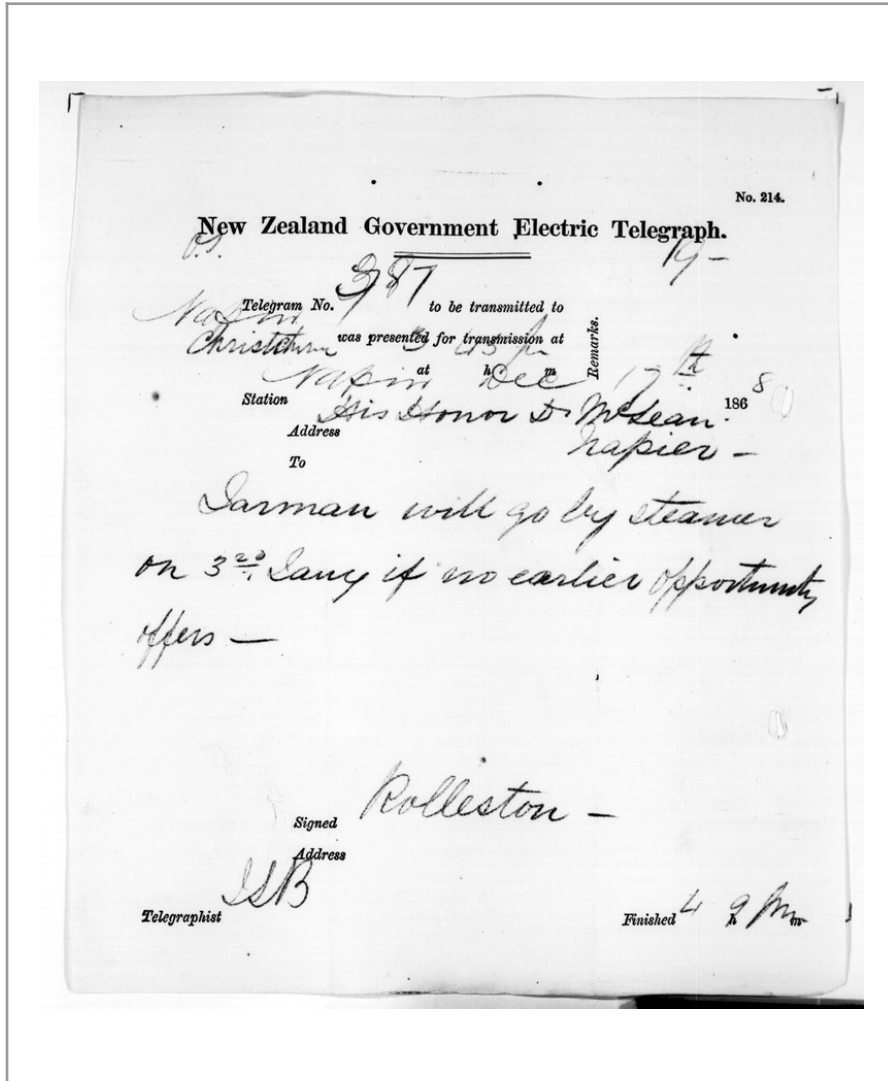 No. 214.
New Zealand Government Electric Telegraph.
19-
Telegram No. 387 to be transmitted to
Napier
Christchurch was presented for transmission at 3 45 p m
Remarks.
at h m
Station Napier Dec 17th 1868
Address His Honor D. McLean
To Napier -
Jarman will go by steamer
on 3rd. Jany if no earlier opportunity
offers —
Signed Rolleston -
Address
Telegraphist
Finished 4 h 9 pm m